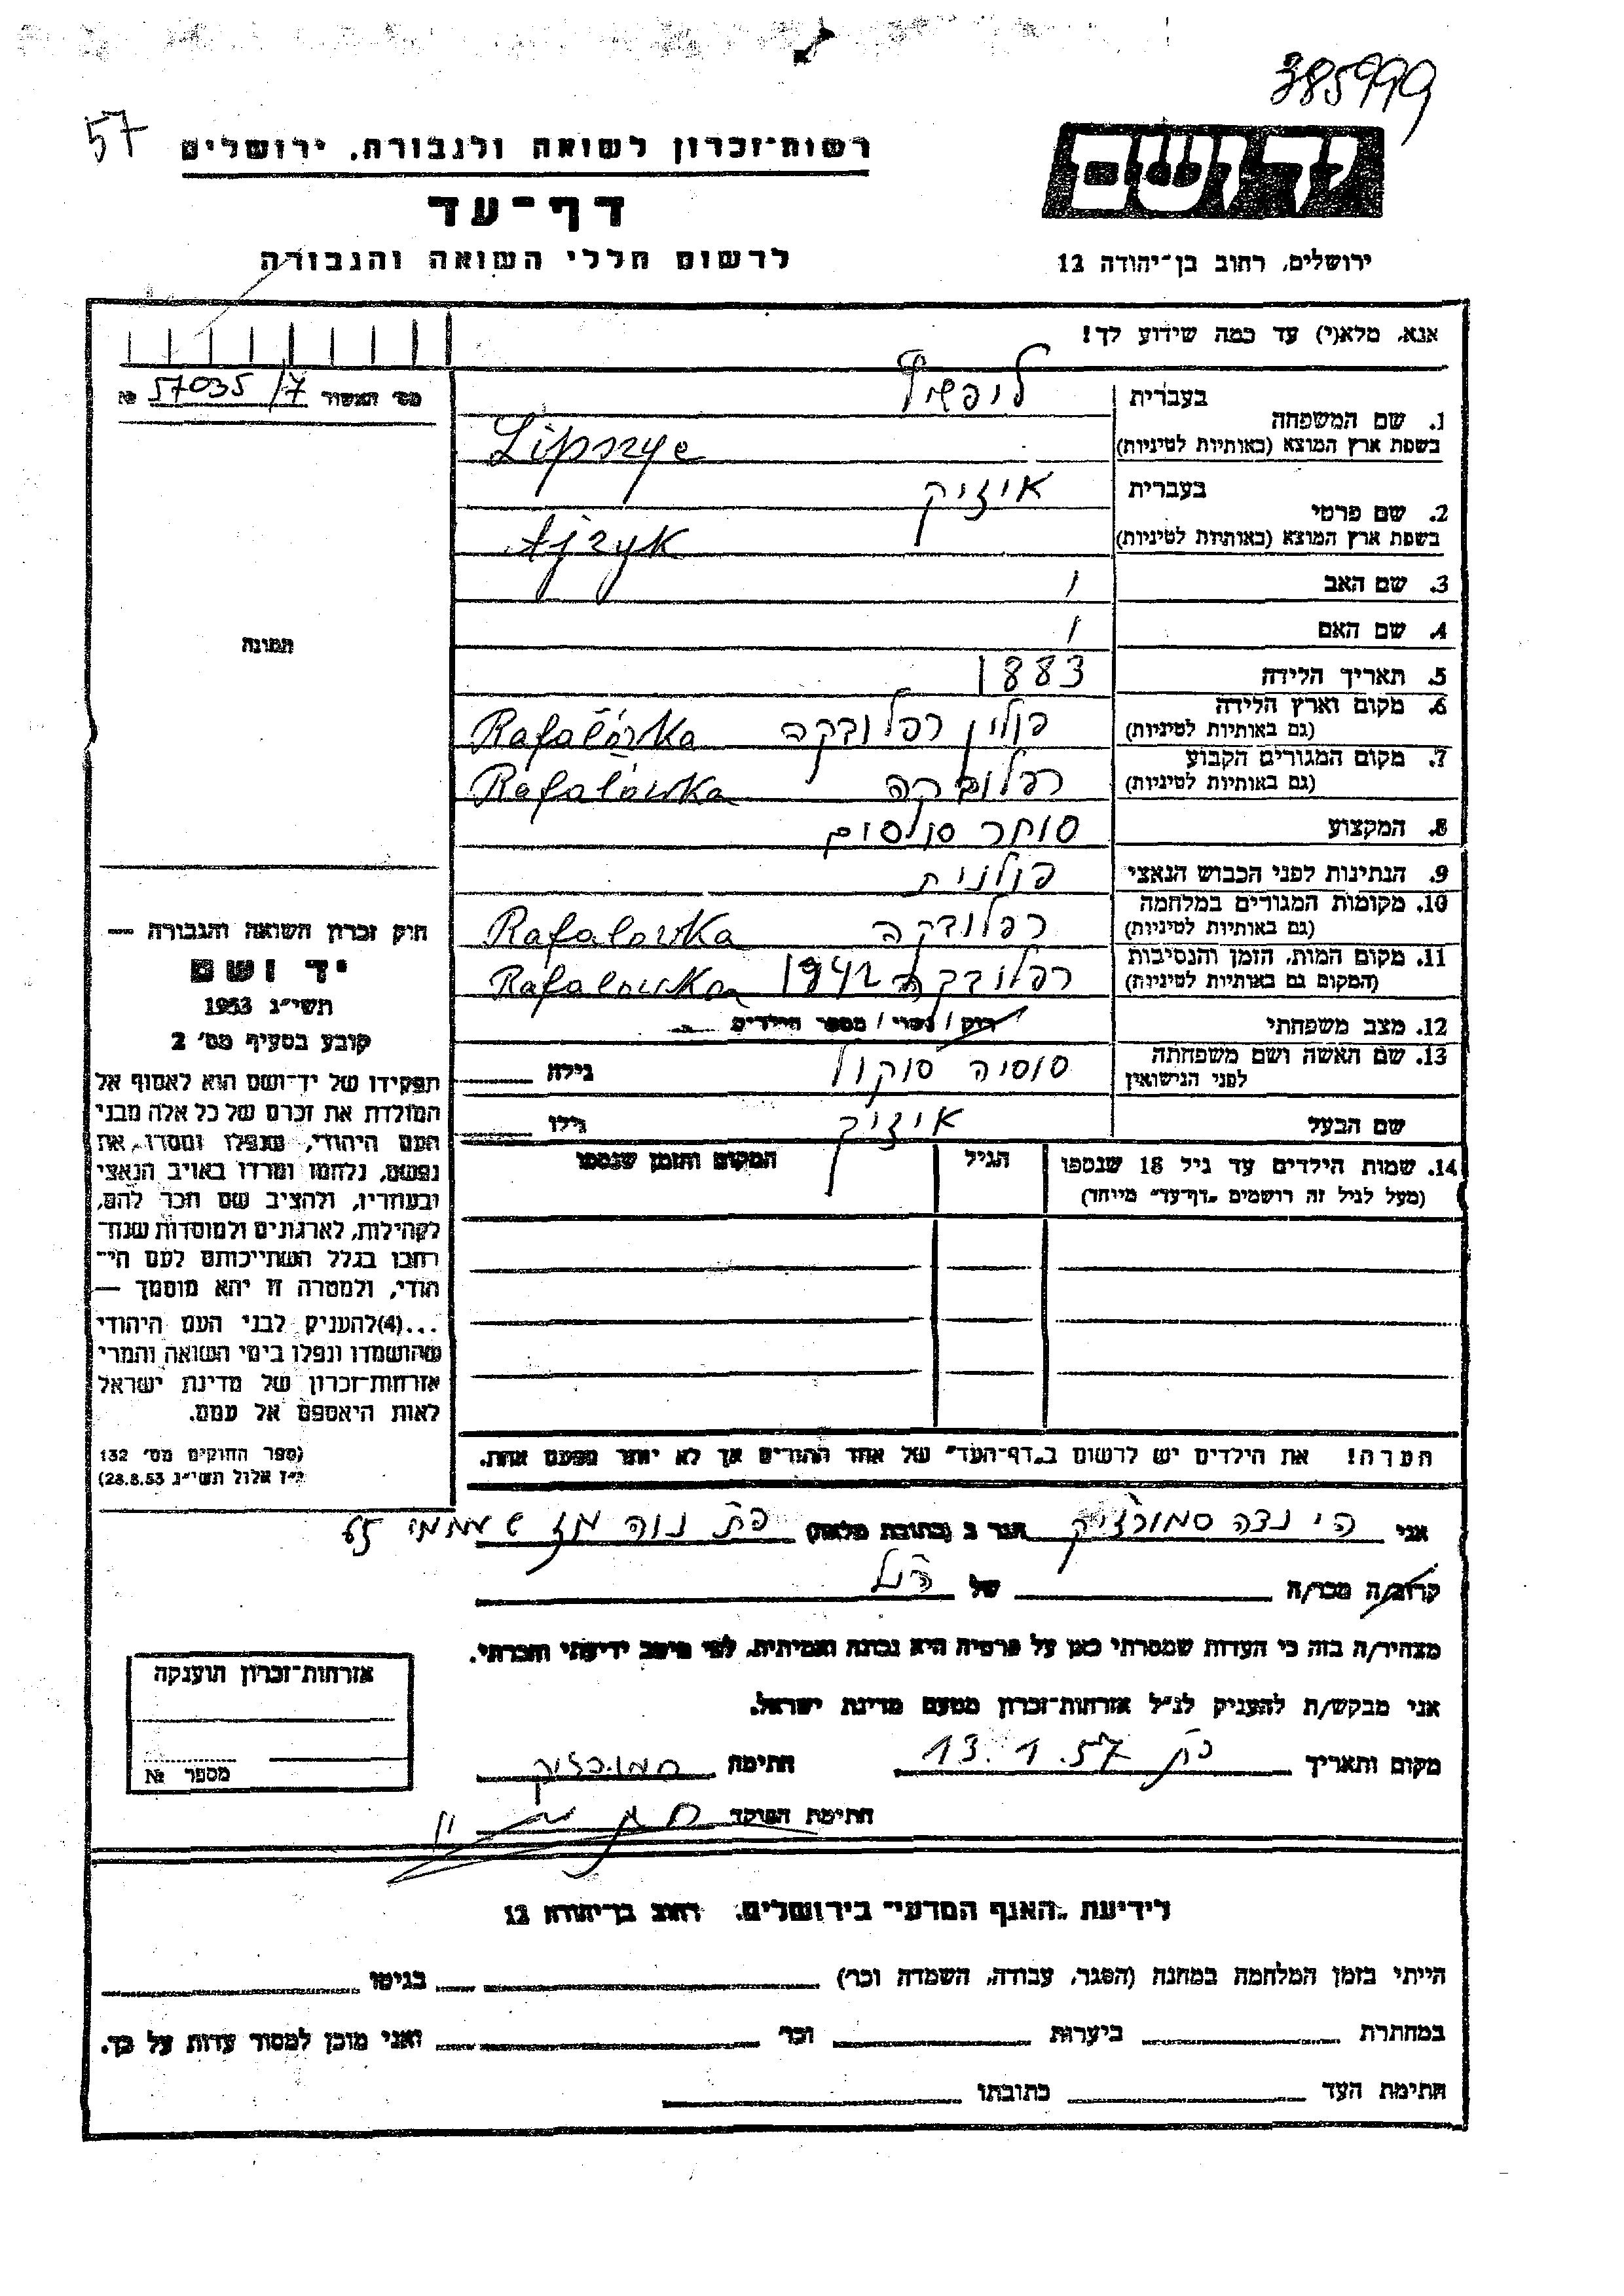 385999
57
רשות־זכרון לשואה ולגבורה, ירושלים
דף־עד
לרשום חללי השואה והגבורה
יד ושם
ירושלים, רחוב בן־יהודה 12
אנא, מלא(י) עד כמה שידוע לך!
מס' האשור 57035/7 №
תמונה
1. שם המשפחה בעברית ליפשיץ
בשפת ארץ המוצא (באותיות לטיניות) Lipszyc
2. שם פרטי בעברית איזיק
בשפת ארץ המוצא (באותיות לטיניות) Ajzyk
3. שם האב /
4. שם האם /
5. תאריך הלידה 1883
6. מקום וארץ הלידה (גם באותיות לטיניות) פולין רפלובקה Rafałówka
7. מקום המגורים הקבוע (גם באותיות לטיניות) רפלובקה Rafałówka
8. המקצוע סוחר
9. הנתינות לפני הכבוש הנאצי פולנית
10. מקומות המגורים במלחמה (גם באותיות לטיניות) רפלובקה Rafalowka
11. מקום המות, הזמן והנסיבות (המקום גם באותיות לטיניות) רפלובקה 1942 Rafalowka
12. מצב משפחתי רוק / נשוי / מספר הילדים
13. שם האשה ושם משפחתה לפני הנישואין סוסיה סוקול גילה
שם הבעל איזיק גילו
14. שמות הילדים עד גיל 18 שנספו (מעל לגיל זה רושמים "דף־עד" מיוחד) הגיל המקום והזמן שנספו
הערה! את הילדים יש לרשום ב"דף־העד" של אחד ההורים אך לא יותר מפעם אחת.
חוק זכרון השואה והגבורה —
יד ושם
תשי"ג 1953
קובע בסעיף מס' 2
תפקידו של יד־ושם הוא לאסוף אל
המולדת את זכרם של כל אלה מבני
העם היהודי, שנפלו ומסרו את
נפשם, נלחמו ומרדו באויב הנאצי
ובעוזריו, ולהציב שם וזכר להם,
לקהילות, לארגונים ולמוסדות שנח־
רבו בגלל השתייכותם לעם הי־
הודי, ולמטרה זו יהא מוסמך —
...(4)להעניק לבני העם היהודי
שהושמדו ונפלו בימי השואה והמרי
אזרחות־זכרון של מדינת ישראל
לאות היאספם אל עמם.
(ספר החוקים מס' 132
י"ז אלול תשי"ג 28.8.53)
אני סמורצ'יק הגר ב (כתובת מלאה) פת נוה עוז
קרוב/ה מכר/ה של הנ"ל
מצהיר/ה בזה כי העדות שמסרתי כאן על פרטיה היא נכונה ואמיתית, לפי מיטב ידיעתי והכרתי.
אני מבקש/ת להעניק לנ"ל אזרחות־זכרון מטעם מדינת ישראל.
מקום ותאריך פת 13.1.57 חתימה סמורצ'יק
חתימת הפוקד
אזרחות־זכרון הוענקה
מספר №
לידיעת "האגף המדעי" בירושלים, רחוב בן־יהודה 12
הייתי בזמן המלחמה במחנה (הסגר, עבודה, השמדה וכו') בגיטו
במחתרת ביערות וכו' ואני מוכן למסור עדות על כך.
חתימת העד כתובתו